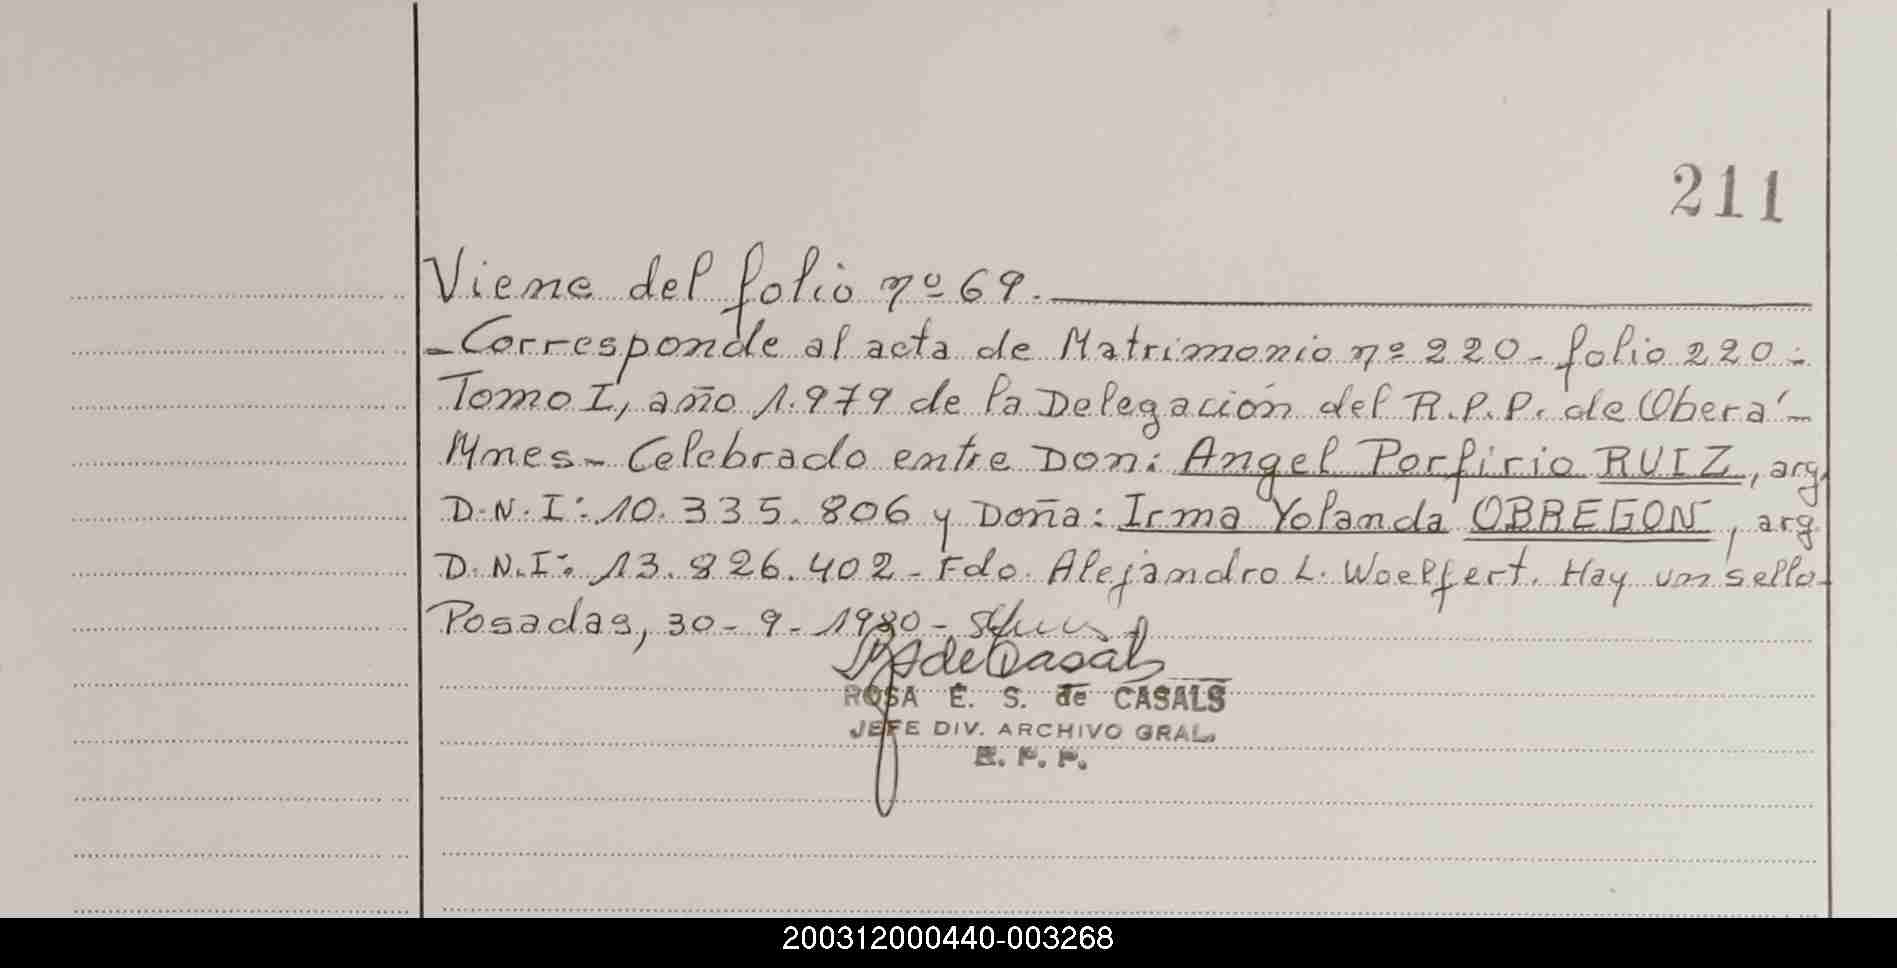 211
Viene del folio nº 69.
- Corresponde al acta de Matrimonio nº 220 - folio 220 -
Tomo I, año 1.979 de la Delegación del R.P.P. de Oberá -
Mnes - Celebrado entre Don: Angel Porfirio RUIZ, arg.
D.N.I: 10.335.806 y Doña: Irma Yolanda OBREGON, arg
D.N.I: 13.826.402 - Fdo. Alejandro L. Woelfert. Hay un sello -
Posadas, 30 - 9 - 1980 -
ROSA E. S. de CASALS
JEFE DIV. ARCHIVO GRAL.
R. P. P.
200312000440-003268